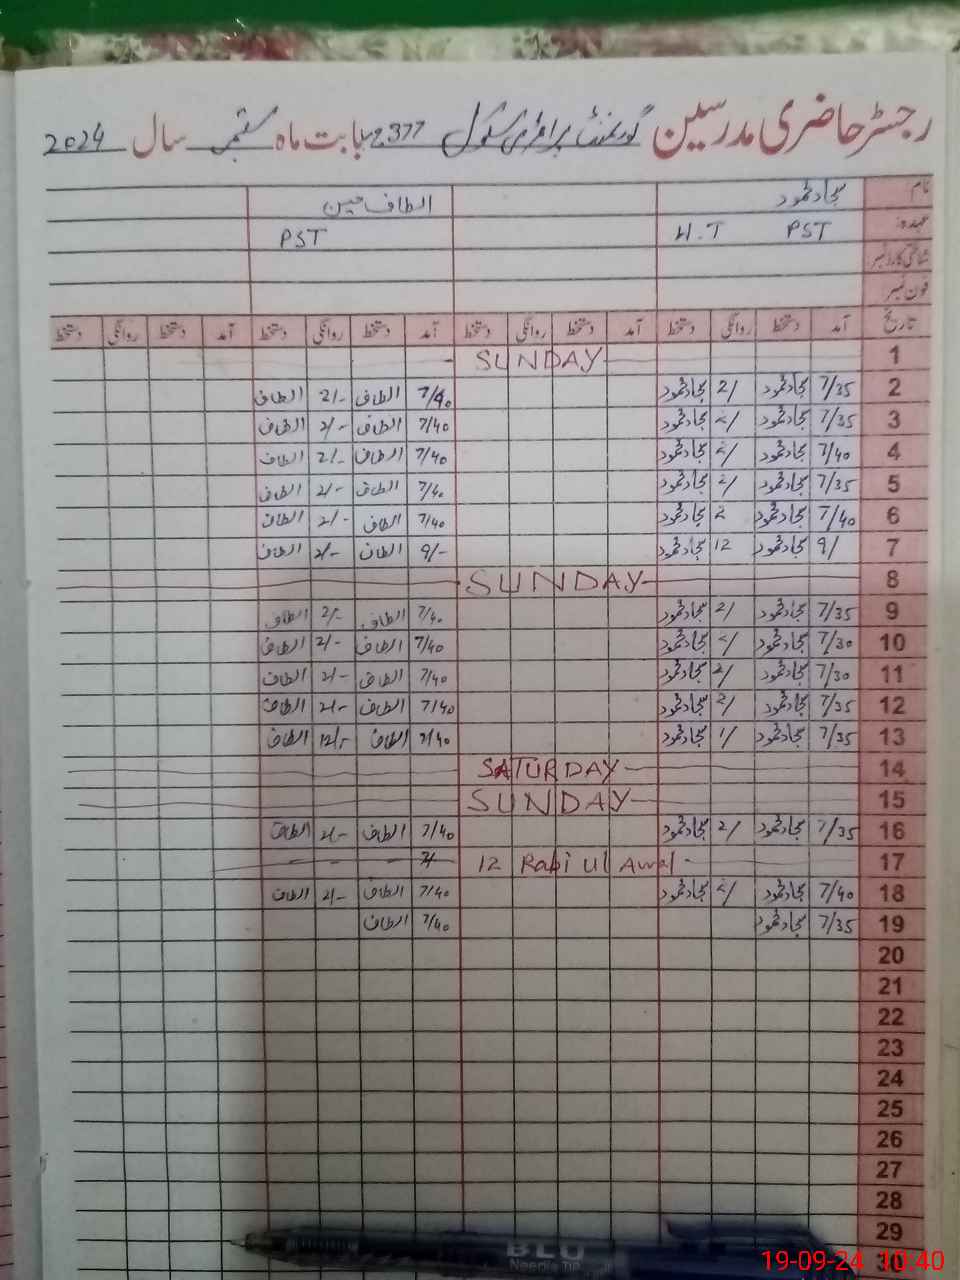 رجسٹر حاضری مدرسین گورنمنٹ پرائمری سکول 377 بابت ماہ ستمبر سال 2024
نام سجاد محمود الطاف حسین
عہدہ PST H.T PST
شناختی کارڈ نمبر
فون نمبر
تاریخ آمد دستخط روانگی دستخط آمد دستخط روانگی دستخط آمد دستخط روانگی دستخط آمد دستخط روانگی دستخط
1 SUNDAY
2 7/35 سجاد محمود 2/ سجاد محمود 7/40 الطاف 2/- الطاف
3 7/35 سجاد محمود 2/ سجاد محمود 7/40 الطاف 2/- الطاف
4 7/40 سجاد محمود 2/ سجاد محمود 7/40 الطاف 2/- الطاف
5 7/35 سجاد محمود 2/ سجاد محمود 7/40 الطاف 2/- الطاف
6 7/40 سجاد محمود 2 سجاد محمود 7/40 الطاف 2/- الطاف
7 9/ سجاد محمود 12 سجاد محمود 9/- الطاف 2/- الطاف
8 SUNDAY
9 7/35 سجاد محمود 2/ سجاد محمود 7/40 الطاف 2/- الطاف
10 7/30 سجاد محمود 2/ سجاد محمود 7/40 الطاف 2/- الطاف
11 7/30 سجاد محمود 2/ سجاد محمود 7/40 الطاف 2/- الطاف
12 7/35 سجاد محمود 2/ سجاد محمود 7/40 الطاف 2/- الطاف
13 7/35 سجاد محمود 1/ سجاد محمود 7/40 الطاف 12/- الطاف
14 SATURDAY
15 SUNDAY
16 7/35 سجاد محمود 2/ سجاد محمود 7/40 الطاف 2/- الطاف
17 12 Rabi Ul Awal
18 7/40 سجاد محمود 2/ سجاد محمود 7/40 الطاف 2/- الطاف
19 7/35 سجاد محمود 7/40 الطاف
20
21
22
23
24
25
26
27
28
29
BLU
Needle Tip
19-09-24 10:40